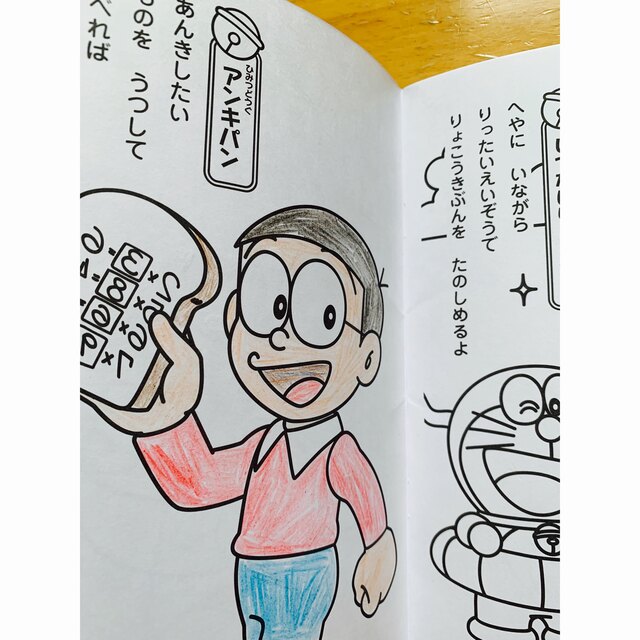 ひみつどうぐ
アンキパン
あんきしたい
ものを うつして
べれば
へやに いながら
りったいえいぞうで
りょこうきぶんを たのしめるよ